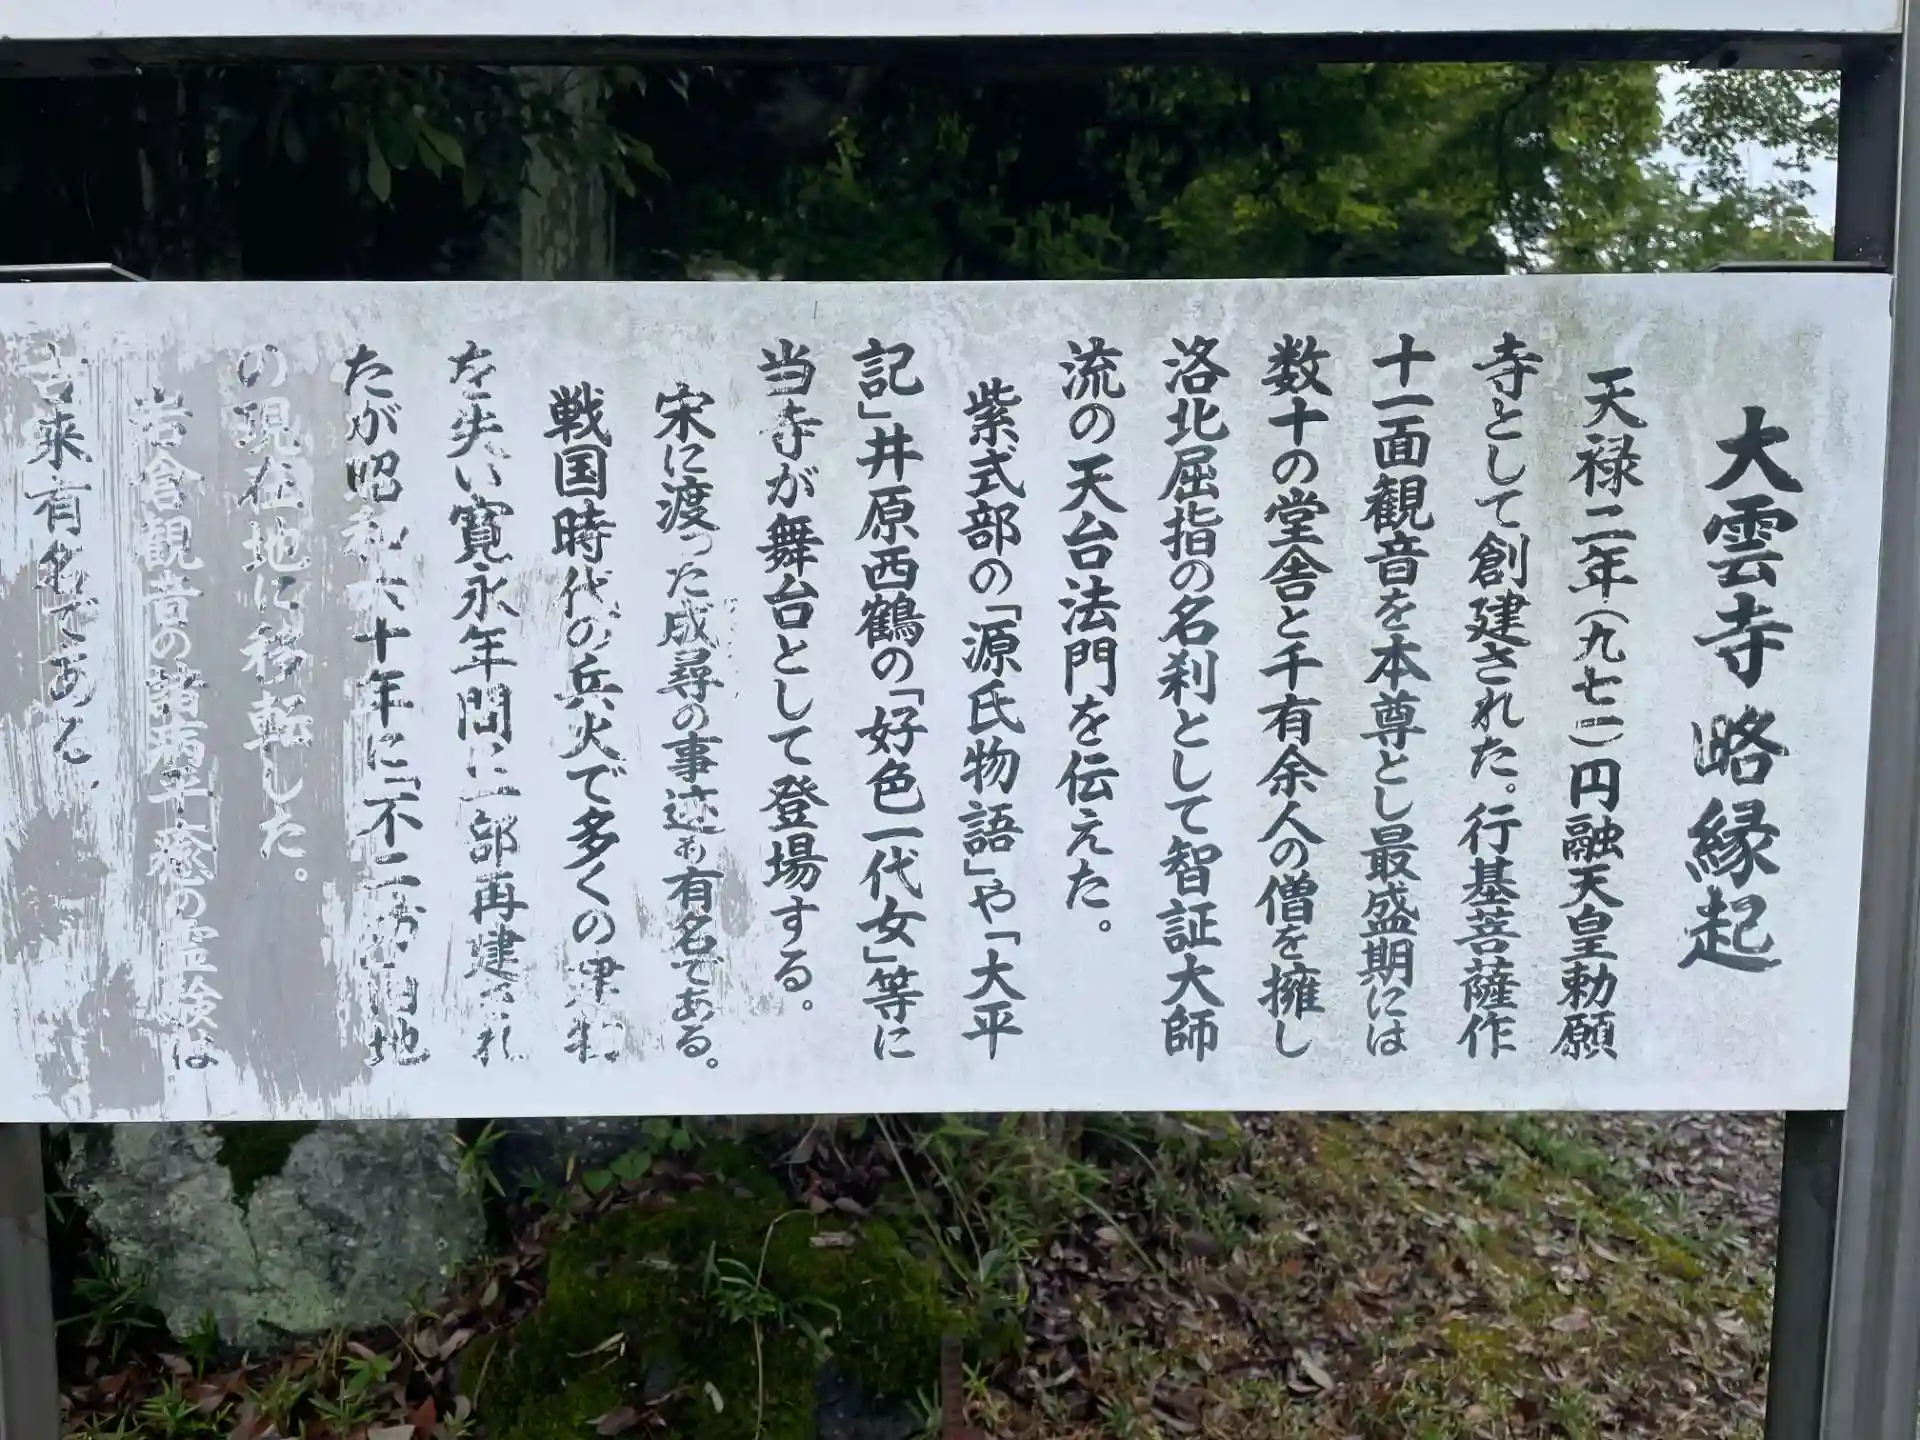 大雲寺略縁起
天禄二年(九七一)円融天皇勅願
寺として創建された。行基菩薩作
十一面観音を本尊とし最盛期には
数十の堂舎と千有余人の僧を擁し
洛北屈指の名刹として智証大師
流の天台法門を伝えた。
紫式部の「源氏物語」や「大平
記」井原西鶴の「好色一代女」等に
当寺が舞台として登場する。
宋に渡った成尋の事迹も有名である。
戦国時代の兵火で多くの建物
を失い寛永年間に一部再建され
たが昭和六十年に「不二 内地
の現在地に移転した。
岩倉観音の諸病平癒の霊験は
古来有名である。